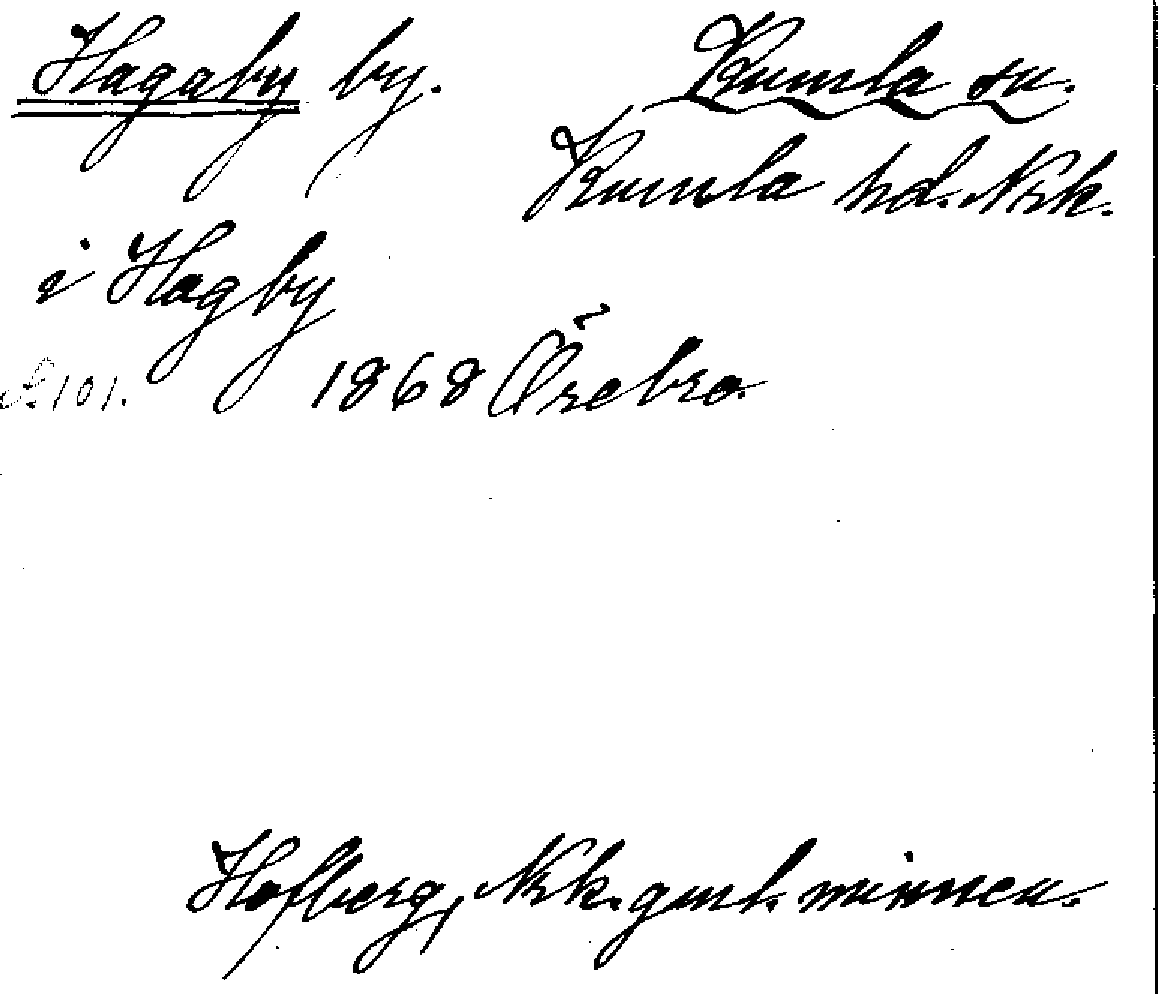 Hagaby by. Kumla sn.
Kumla hd. Nrk.
i Hagby
S. 101. 1868 Örebro.
Hofberg, Nrk. gml. minnen.